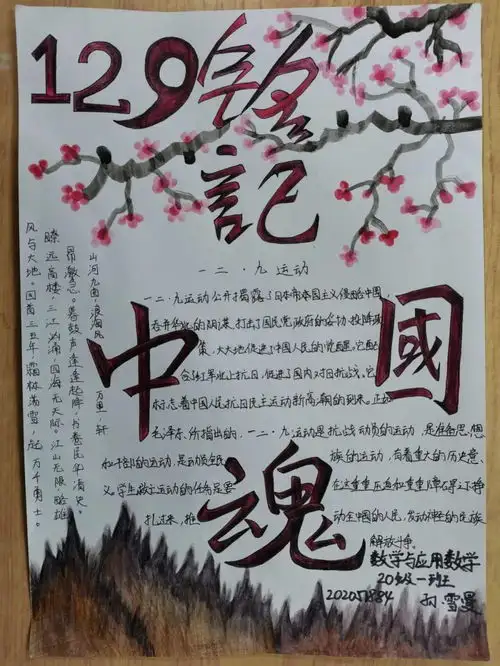 129銘記
一二·九运动
一二·九运动公开揭露了日本帝国主义侵略中国,
吞并华北的阴谋,打击了国民党政府的妥协投降政
策,大大地促进了中国人民的觉醒。它配
合了红军北上抗日,促进了国内对日抗战。它
标志着中国人民抗日民主运动新高潮的到来。正如
毛泽东所指出的,一二·九运动是抗战动员的运动,是准备思想
和干部的运动,是动员全民族的运动,有着重大的历史意
义。学生救亡运动的任务是要在这重重压迫和重重障碍之下挣
扎过来,推动全中国的人民,发动神圣的民族
解放斗争。
中國魂
山河九曲,浪淘风万里,轩
昂激急。鼙鼓声连连起阵,书卷民
瞭远高楼,三江汹涌,固海无天际。江山无限
风与大地。回首三五年,霜林满雪,起万千勇士。
数学与应用数学
20级一班
孙雪曼